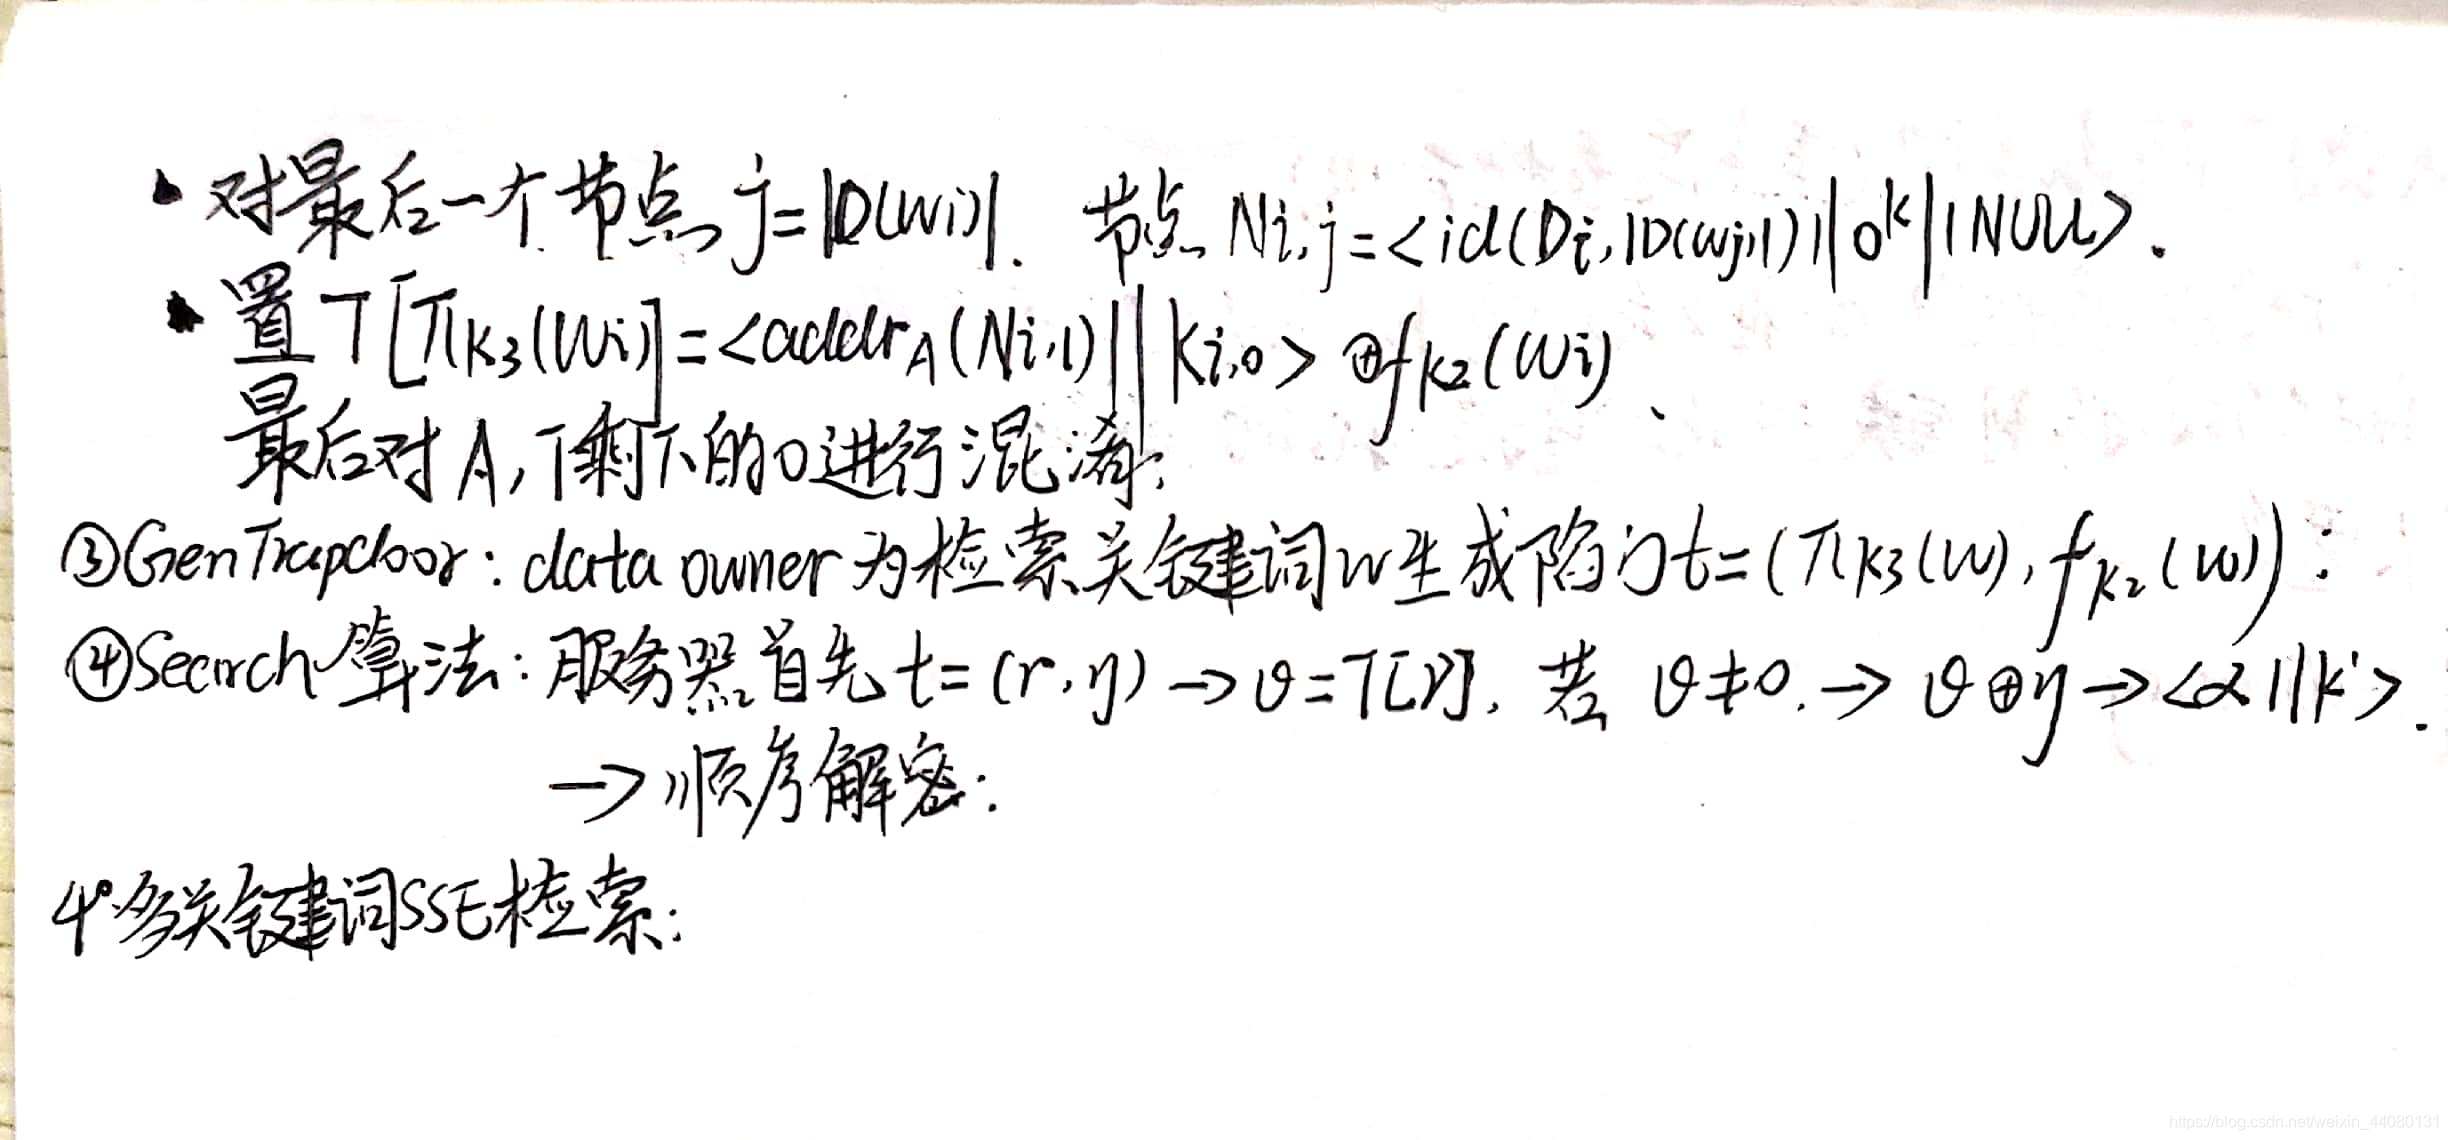 · 对最后一个节点 j=|D(Wi)|. 节点 Ni,j=<id(Di,|D(wj)|)||0^k||NULL>.
· 置 T[π_K3(Wi)]=<addr_A(Ni,1)||Ki,0>⊕f_K2(Wi)、
最后对 A,T剩下的0进行混淆;
③GenTrapdoor: data owner 为检索关键词w生成陷门t=(π_K3(W),f_K2(W)):
④Search算法: 服务器首先 t=(r,η)→θ=T[r], 若 θ≠0.→ θ⊕η→<α||k'>.
→顺序解密:
4°多关键词SSE检索:
https://blog.csdn.net/weixin_44080131